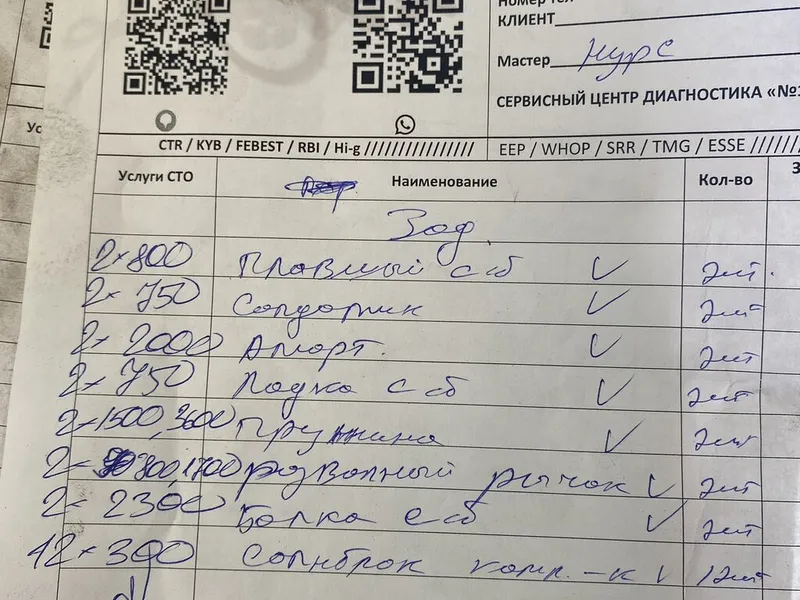 КЛИЕНТ
Мастер Нурс
СЕРВИСНЫЙ ЦЕНТР ДИАГНОСТИКА «№1
CTR / KYB / FEBEST / RBI / Hi-g //////////////// EEP / WHOP / SRR / TMG / ESSE ///////
Услуги СТО Наименование Кол-во З
Зад.
2×800 Плавный с б ✓ 2шт.
2×750 ✓ 2шт
2×2000 Аморт. ✓ 2шт
2×750 с б ✓ 2шт
2×1500,3600 Пружина ✓ 2шт
2× 800,1700 розвалный рычак ✓ 2шт
2×2300 Балка с б ✓ 2шт
12×300 комп.-к ✓ 12шт